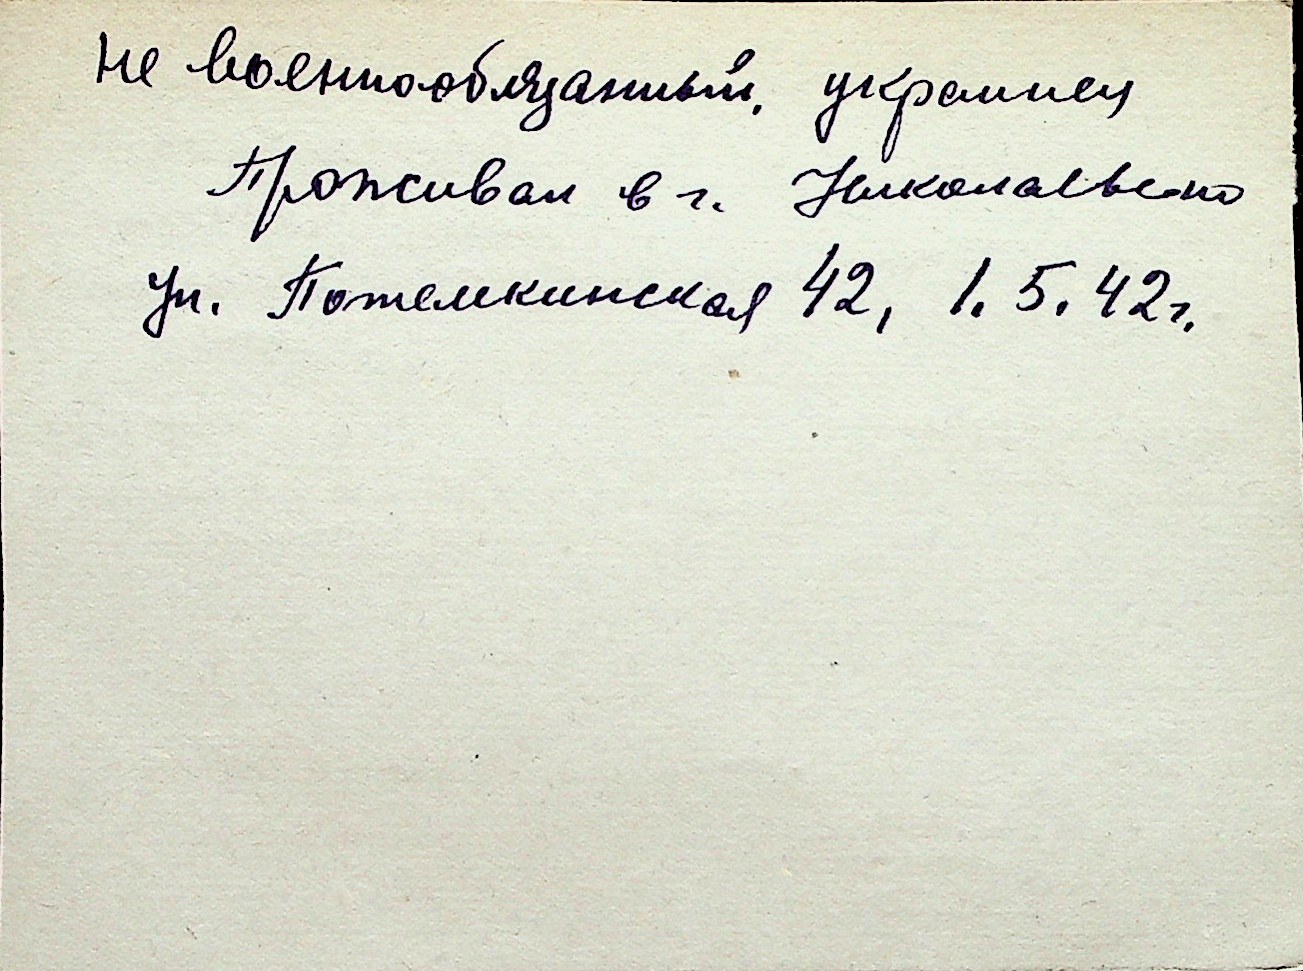 не военнообязанный, украинец
Проживал в г. Николаевено
ул. Потемкинская 42, 1.5.42г.